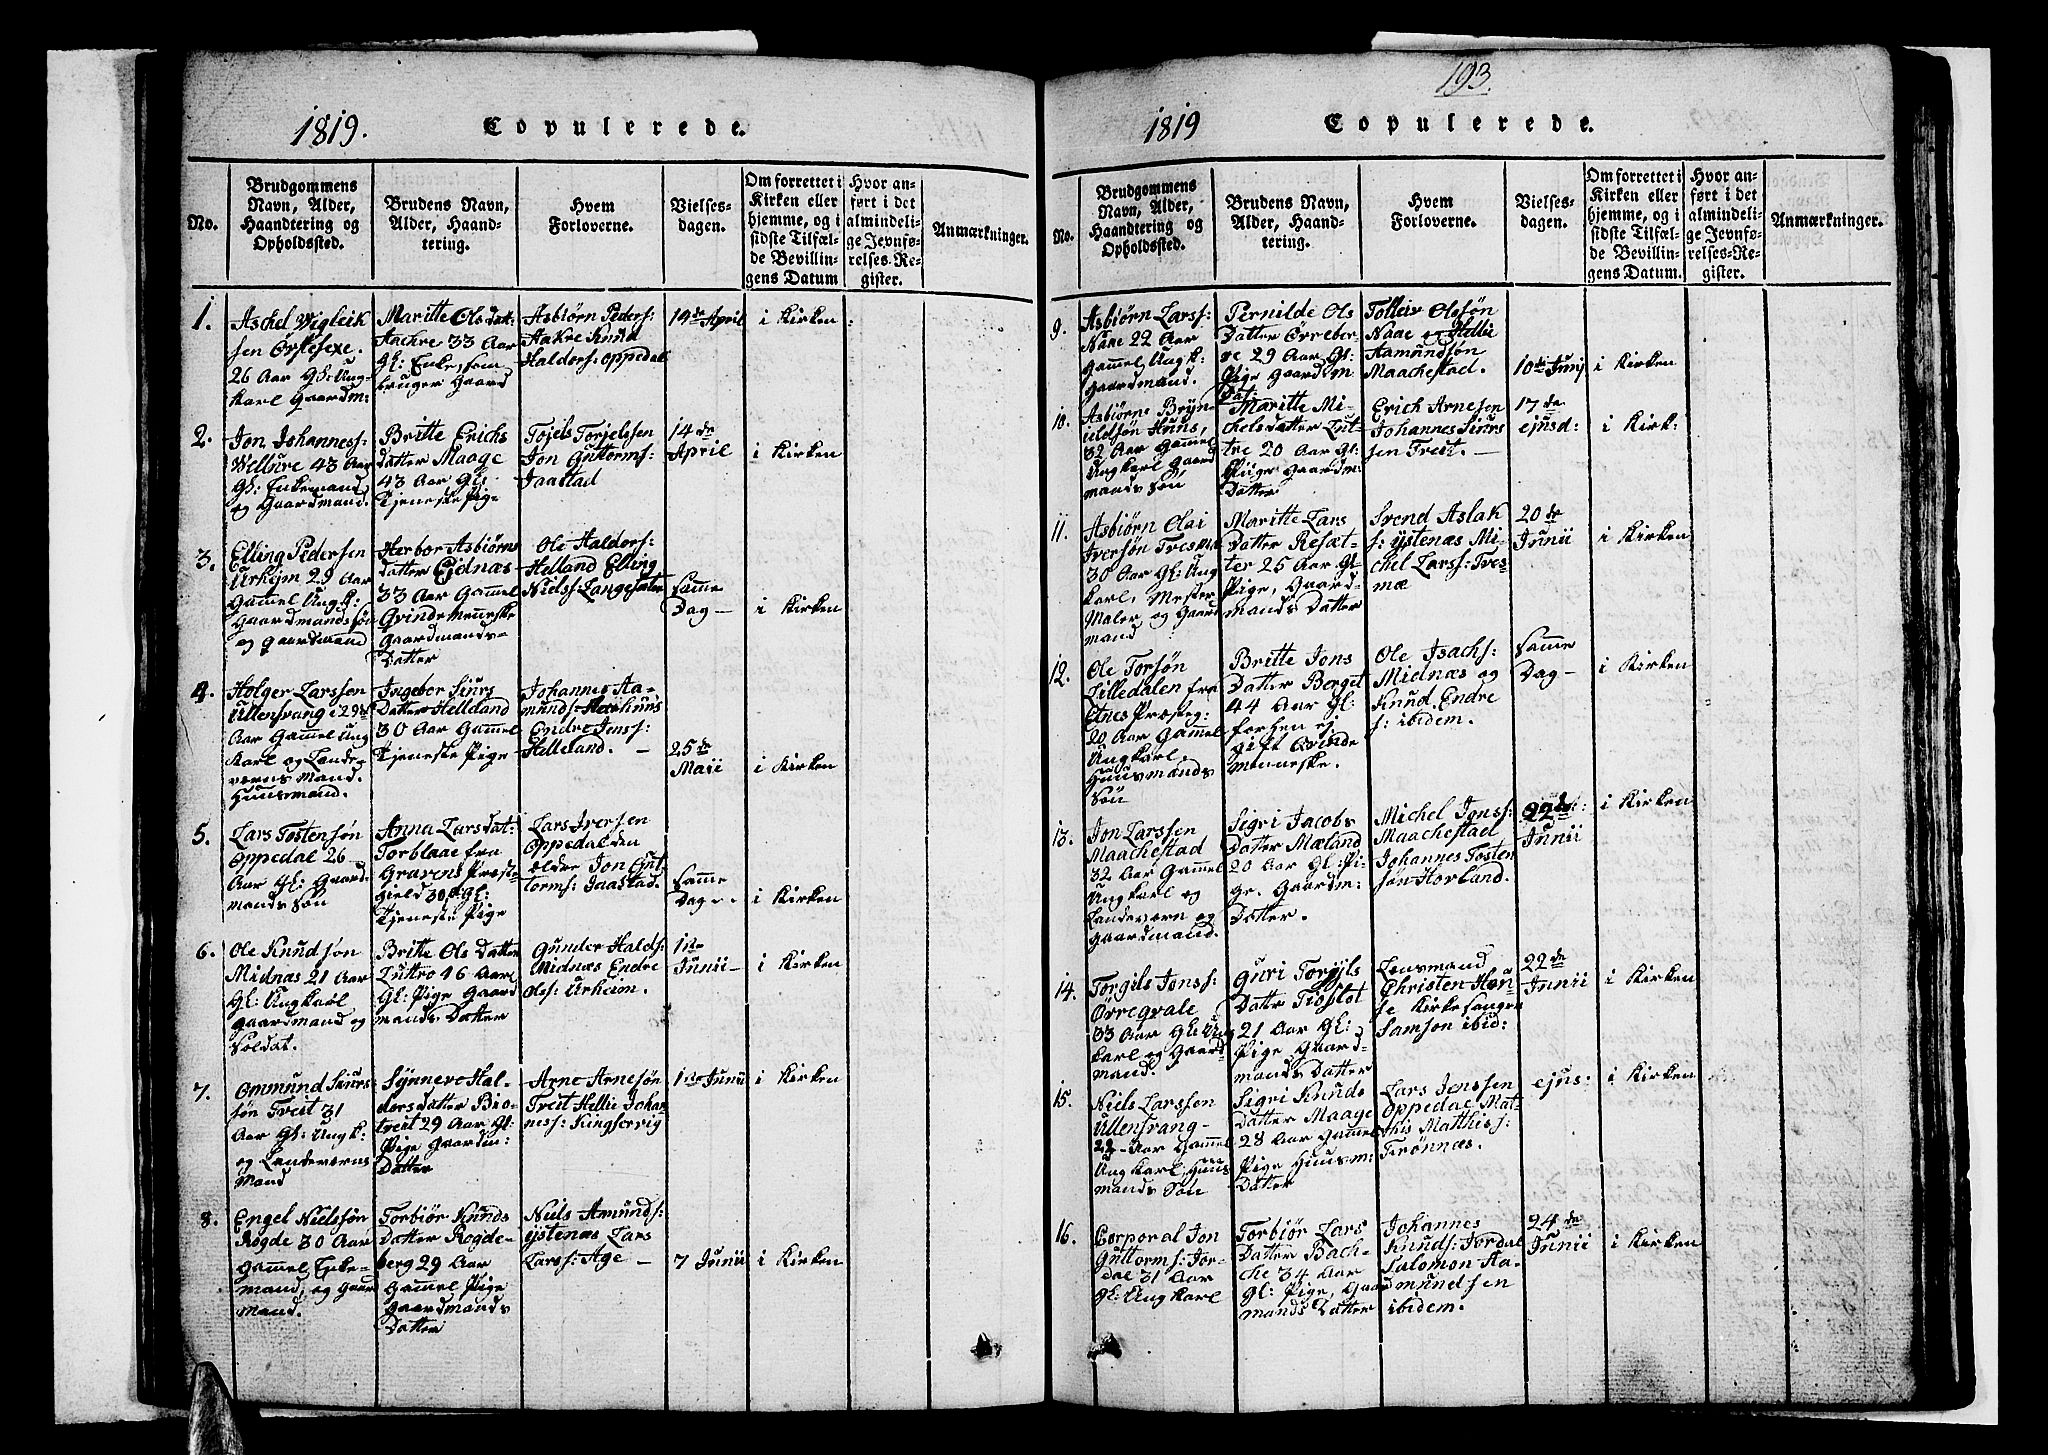 1819. Copulerede.
No.
Brudgommens
Navn, Alder,
Haandtering og
Opholdssted.
Brudens Navn,
Alder, Haand-
tering.
Hvem
Forloverne.
Vielses-
dagen.
Om forrettet i
Kirken eller
hjemme, og i
sidste Tilfæl-
de Bevillin-
gens Datum
Hvor an-
ført i det
almindeli-
ge Jevnfø-
relses-Re-
gister.
Anmærkninger.
1.
Askel Vigleik
sen Örkesexe.
26 Aar Gl: Ung-
karl Gaardm:
Maritte Ols dat-
Aachre 33 Aar
Gl: Enke, som
bruger Gaard
Asbiørn Peders:
Aakre Knud
Halders: Oppedal
14de April
i Kirken
2.
Jon Johanness:
Vellure 43 Aar
Gl: Enkemand
og Gaardmand.
Britte Erichs
datter Maage
43 Aar Gl:
Tjeneste Pige
Torjelssen
Jon Guttorms:
Jaastad
14 de
April
i Kirken
3.
Elling Pedersen
Urheim 29 Aar
Gammel Ungk:
Gaardmandssön
og Gaardmand
Herbor Asbiørns
datter Eidnæs
33 Aar Gammel
Qvindemenneske
Gaardmands-
Datter
Ole Halders:
Helland Elling
Niels: Langesæter
Samme
Dag –
i Kirken
4.
Holger Larssen
Ullensvang i 29de
Aar Gammel Ung
Karl og Lande-
værns Mand.
Huusmand.
Ingebor Siurs
Datter Helleland
30 Aar Gammel
Tjeneste Pige
Johannes Aa-
munds: Aarhuus
Endre Jons:
Helleland. –
25 de
Maii
i Kirken
5.
Lars Tostensøn
Oppedal 26
Aar Gl: Gaard-
mands Søn
Anna Larsdat-
Torblaae fra
Gravens Præste-
gield 30 A Gl:
Tjeneste Pige
Lars Iversen
Oppedal den
ældre Jon Gut-
torms: Jaastad.
Samme
Dag –
i Kirken
6.
Ole Knudsøn
Midnæs 21 Aar
Gl: Ungkarl
Gaardmand og
Soldat.
Britte Ols Datter
Luttro 46 Aar
Gl: Pige Gaard
mands Datter
Gunder Halds:
Midnæs Endre
Oles: Urheim.
1ste
Junii –
i Kirken
7.
Ommund Siurs
søn Treit 31
Aar Gl: Ungk:
og Landeværns
Mand
Synneve Hal-
dorsdatter Bio-
treit 29 Aar Gl:
Pige Gaardm:
Datter
Arne Arnesøn
Treit Hellie Johan
ness: Kingservig
1ste Junii
i Kirken
8.
Engel Nielssøn
Rogde 30 Aar
Gammel Enke-
mand, og Gaar
Mand.
Torbiør Knuds
Datter Rogde-
berg 29 Aar
Gammel Pige
Gaardmands
Datter
Niels Amunds:
ystenæs Lars
Larss: Age –
7 Junii
i Kirken
193.
1819 Copulerede.
No.
Brudgommens
Navn, Alder,
Haandtering og
Opholdssted.
Brudens Navn,
Alder, Haand-
tering.
Hvem
Forloverne.
Vielses-
dagen.
Om forrettet i
Kirken eller
hjemme, og i
sidste Tilfæl-
de Bevillin-
gens Datum.
Hvor an-
ført i det
almindeli-
ge Jevnfø-
relses-Re-
gister.
Anmærkninger.
9.
Asbiørn Larss:
Naae 22 Aar
Gammel Ungk:
Gaardmand.
Pernilde Ols
Datter Örreber-
ve 29 Aar Gl:
Pige Gaardsm
Dat:
Tolleiv Olssøn
Naae og Hellie
Aamundsøn
Maachestad.
10de Junij
i Kirken
10.
Asbiørn Bryn-
ildsøn Huus,
32 Aar Gammel
Ungkarl Gaard
mands Søn
Maritte Mi-
chelsdatter Lut-
tro 20 Aar Gl:
Piige Gaardm.
Datter
Erich Arnesen
Johannes Siurs
sen Treit. –
17 de
ejusd:
i Kirk:
11.
Asbiørn Olai
Iversøn
30 Aar Gl: Ung
karl, Mester
Maler og Gaard
mand
Maritte Lars
Datter Resæt-
ter 25 Aar Gl
Pige, Gaard-
mands Datter
Svend Aslak
s: ystenæs Mi-
chel Larss: Tves-
mæ
20 de
Junii
i Kirken
12.
Ole Torsøn
Lilledalen fra
Etnes Præsteg:
20 Aar Gammel
Ungkarl
Huusmands
Søn
Britte Jons
Datter Berget
44 Aar Gl:
forhen ej
gift Qvinde
Menneske.
Ole Isachs:
Midnæs og
Knud Endre
s: ibidem.
Samme
Dag –
i Kirken
13.
Jon Larssen
Maachestad
32 Aar Gammel
Ungkarl og
Landeværn og
Gaardmand.
Sigri Jacobs
Datter Mæland
20 Aar Gl: Pi-
ge. Gaardm:
Datter.
Michel Jonss:
Maachestad
Johannes Tosten
søn Horland.
22de
Junii
i Kirken
14.
Torgils Jonss:
Örregvale
33 Aar Gl: Ung
karl og Gaard
mand.
Guri Torgils
Datter Tioflot
21 Aar Gl:
Pige Gaard-
mands Datter
Lensmand
Christen Han-
se Kirkesanger
Samson ibid:
22 de
Junii
i Kirken
15.
Niels Larssen
Ullensvang –
22 – Aar Gammel
Ungkarl, Huus
mands Søn
Sigri Knuds
Datter Maage
28 Aar Gammel
Pige Huusm:
Datter
Lars Jenssen
Oppedal Mat-
this Mathiss:
Trønnæs.
ejus:
i Kirken
16.
Corporal Jon
Guttorms: Jor-
dal 31 Aar
Gl: Ungkarl
Torbiør Lars
Datter Bach-
che 34 Aar
Gl: Pige, Gaard
mands Datter
Johannes
Knuds: Jordal
Salomon Aa-
mundsen
ibidem.
24 de
Junii
i Kirken